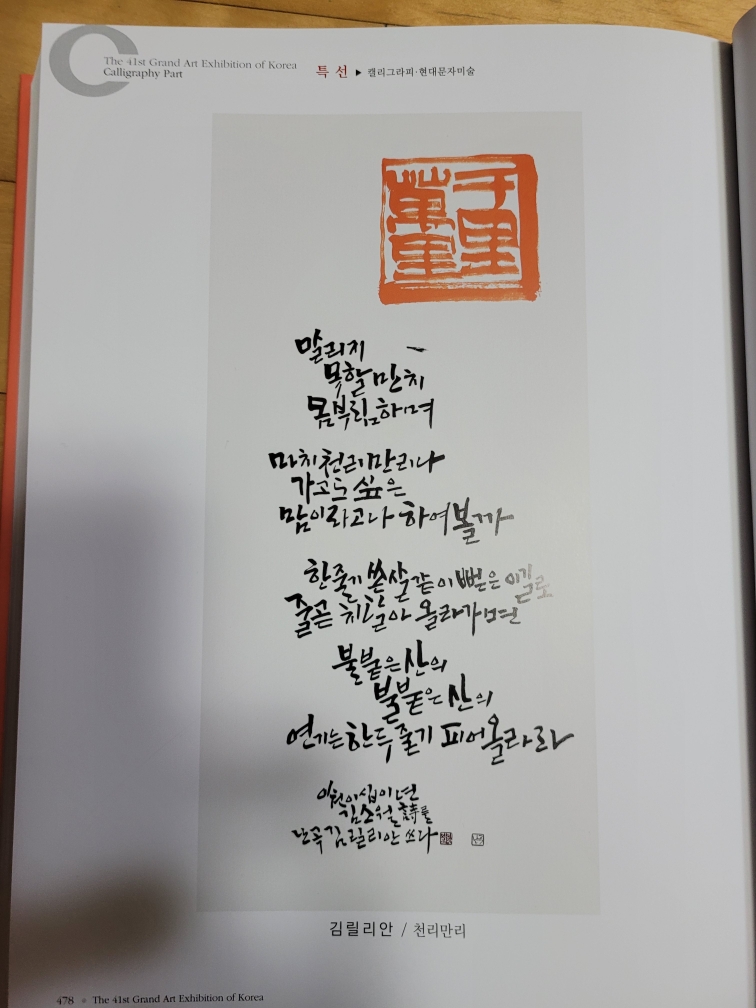 The 41st Grand Art Exhibition of Korea
Calligraphy Part
특 선 ▶ 캘리그라피·현대문자미술
千里
萬里
말리지
못할 만치
몸부림하며
마치 천리만리나
가고도 싶은
맘이라고나 하여볼까
한줄기 쏜살같이 뻗은 이길로
줄곧 치달아 올라가면
불붙은 산의
불붙은 산의
연기는 한두줄기 피어올라라
이천이십이년
김소월 詩를
난곡 김릴리안 쓰다
김릴리안 / 천리만리
478 The 41st Grand Art Exhibition of Korea